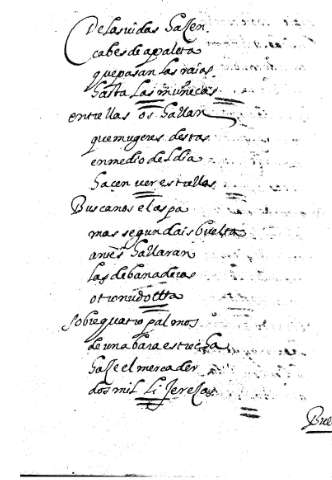 De las uidas hallen
cabes de a paleta
que pasan las raias
hasta las muñecas
entre llas os hallan
que mugeres destas
en medio del dia
haçen ver estrellas
Buscanos el aspa
mas segun dais buelta
hallaran
las debanaderas
otro nudo
sobre quatro palmos
de una bara estrecha
halle el mercader
dos mil